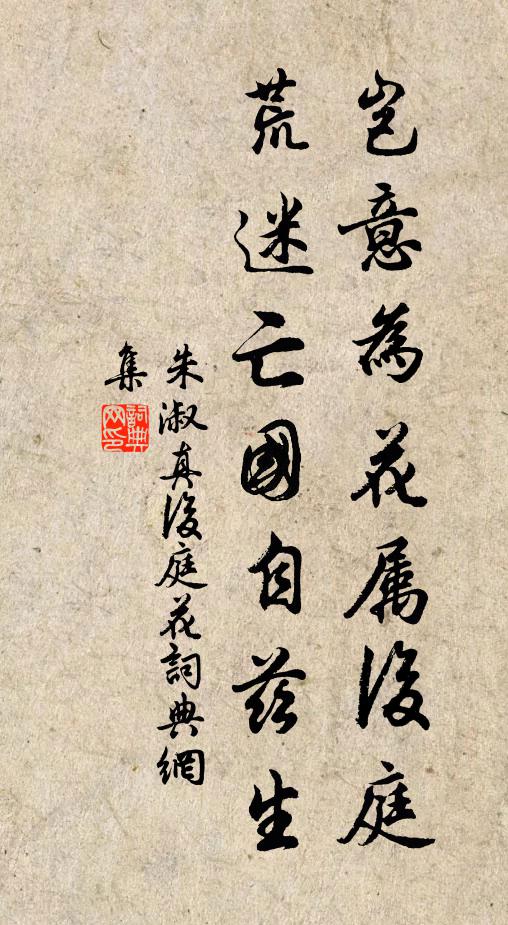 豈意為花属後庭
荒迷亡國自兹生
朱淑真後庭花詞典網
集
詞典網印